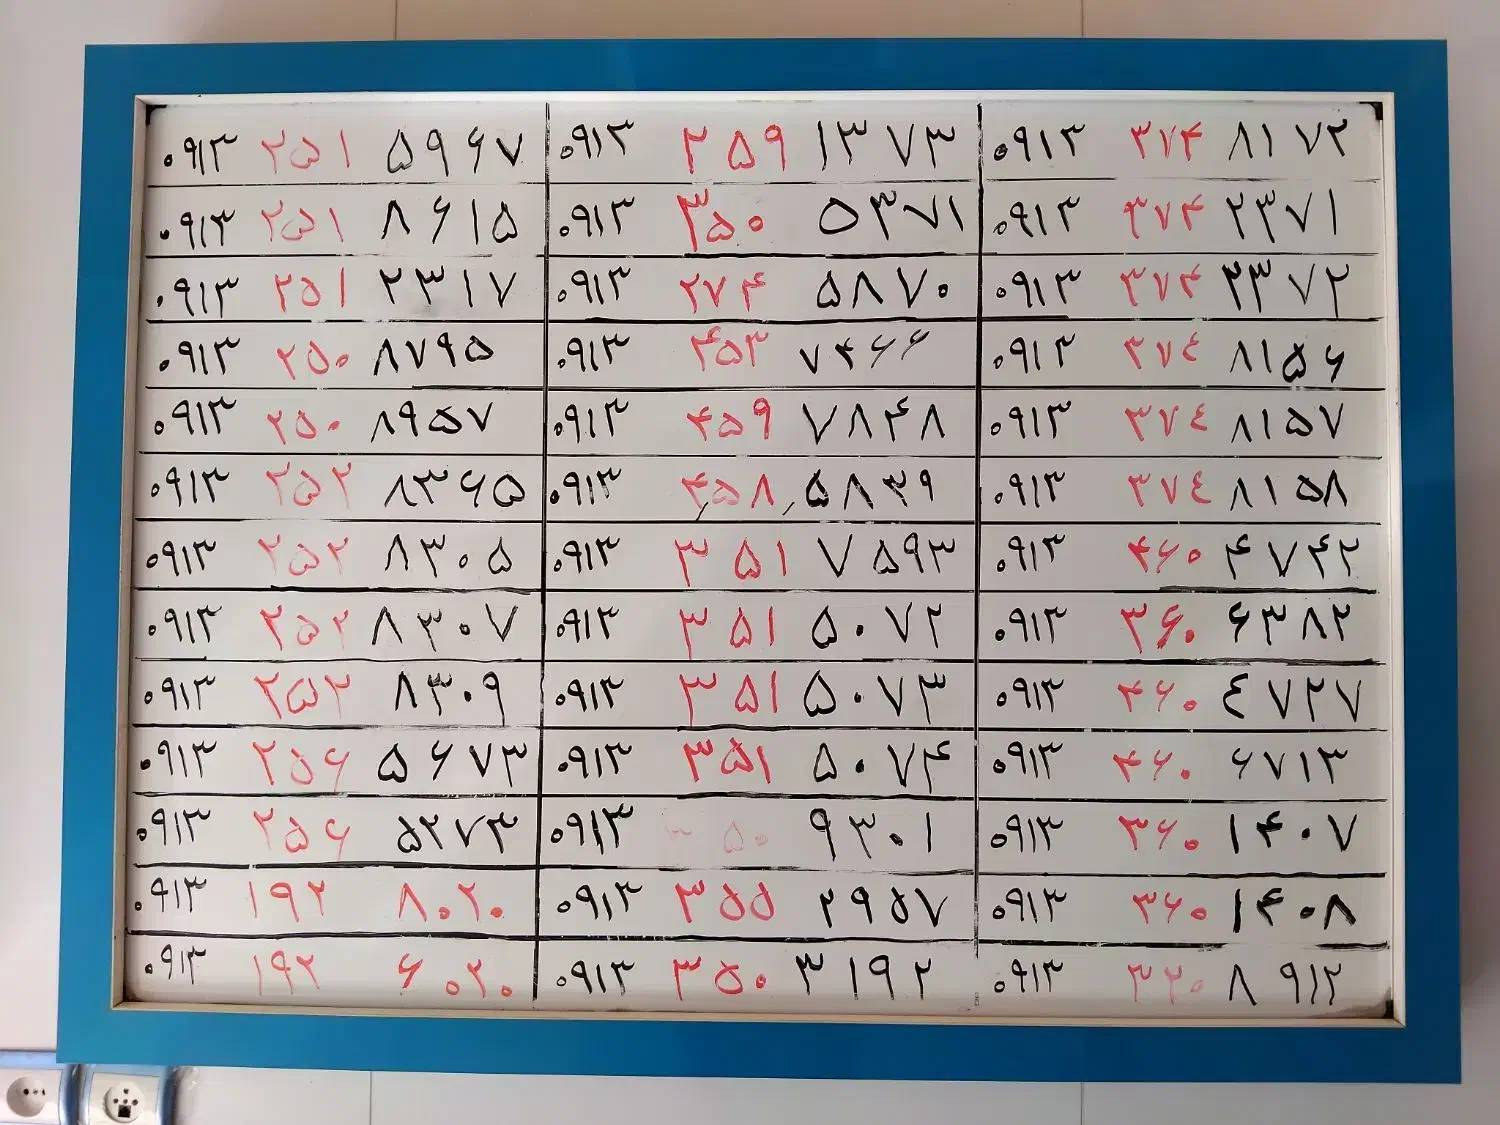 ۰۹۱۳ ۲۵۱ ۵۹۶۷ ۰۹۱۳ ۲۵۹ ۱۳۷۳ ۰۹۱۳ ۳۷۴ ۸۱۷۲
۰۹۱۳ ۲۵۱ ۸۶۱۵ ۰۹۱۳ ۳۵۰ ۵۳۷۱ ۰۹۱۳ ۳۷۴ ۲۳۷۱
۰۹۱۳ ۲۵۱ ۲۳۱۷ ۰۹۱۳ ۲۷۴ ۵۸۷۰ ۰۹۱۳ ۳۷۴ ۳۳۷۲
۰۹۱۳ ۲۵۰ ۸۷۹۵ ۰۹۱۳ ۴۵۳ ۷۴۶۶ ۰۹۱۳ ۳۷۴ ۸۱۵۶
۰۹۱۳ ۲۵۰ ۸۹۵۷ ۰۹۱۳ ۴۵۹ ۷۸۴۸ ۰۹۱۳ ۳۷۴ ۸۱۵۷
۰۹۱۳ ۲۵۲ ۸۳۶۵ ۰۹۱۳ ۴۵۸ ۵۸۳۹ ۰۹۱۳ ۳۷۴ ۸۱۵۸
۰۹۱۳ ۲۵۲ ۸۳۰۵ ۰۹۱۳ ۳۵۱ ۷۵۹۳ ۰۹۱۳ ۴۶۰ ۴۷۴۲
۰۹۱۳ ۲۵۲ ۸۳۰۷ ۰۹۱۳ ۳۵۱ ۵۰۷۲ ۰۹۱۳ ۳۶۰ ۶۳۸۲
۰۹۱۳ ۲۵۲ ۸۳۰۹ ۰۹۱۳ ۳۵۱ ۵۰۷۳ ۰۹۱۳ ۴۶۰ ۴۷۲۷
۰۹۱۳ ۲۵۶ ۵۶۷۳ ۰۹۱۳ ۳۵۱ ۵۰۷۴ ۰۹۱۳ ۴۶۰ ۶۷۱۳
۰۹۱۳ ۲۵۶ ۵۲۷۳ ۰۹۱۳ ۳۵۰ ۹۳۰۱ ۰۹۱۳ ۳۶۰ ۱۴۰۷
۰۹۱۳ ۱۹۲ ۸۰۲۰ ۰۹۱۳ ۳۵۵ ۲۹۵۷ ۰۹۱۳ ۳۶۰ ۱۴۰۸
۰۹۱۳ ۱۹۲ ۶۰۲۰ ۰۹۱۳ ۳۵۰ ۳۱۹۲ ۰۹۱۳ ۳۲۰ ۸۹۱۲